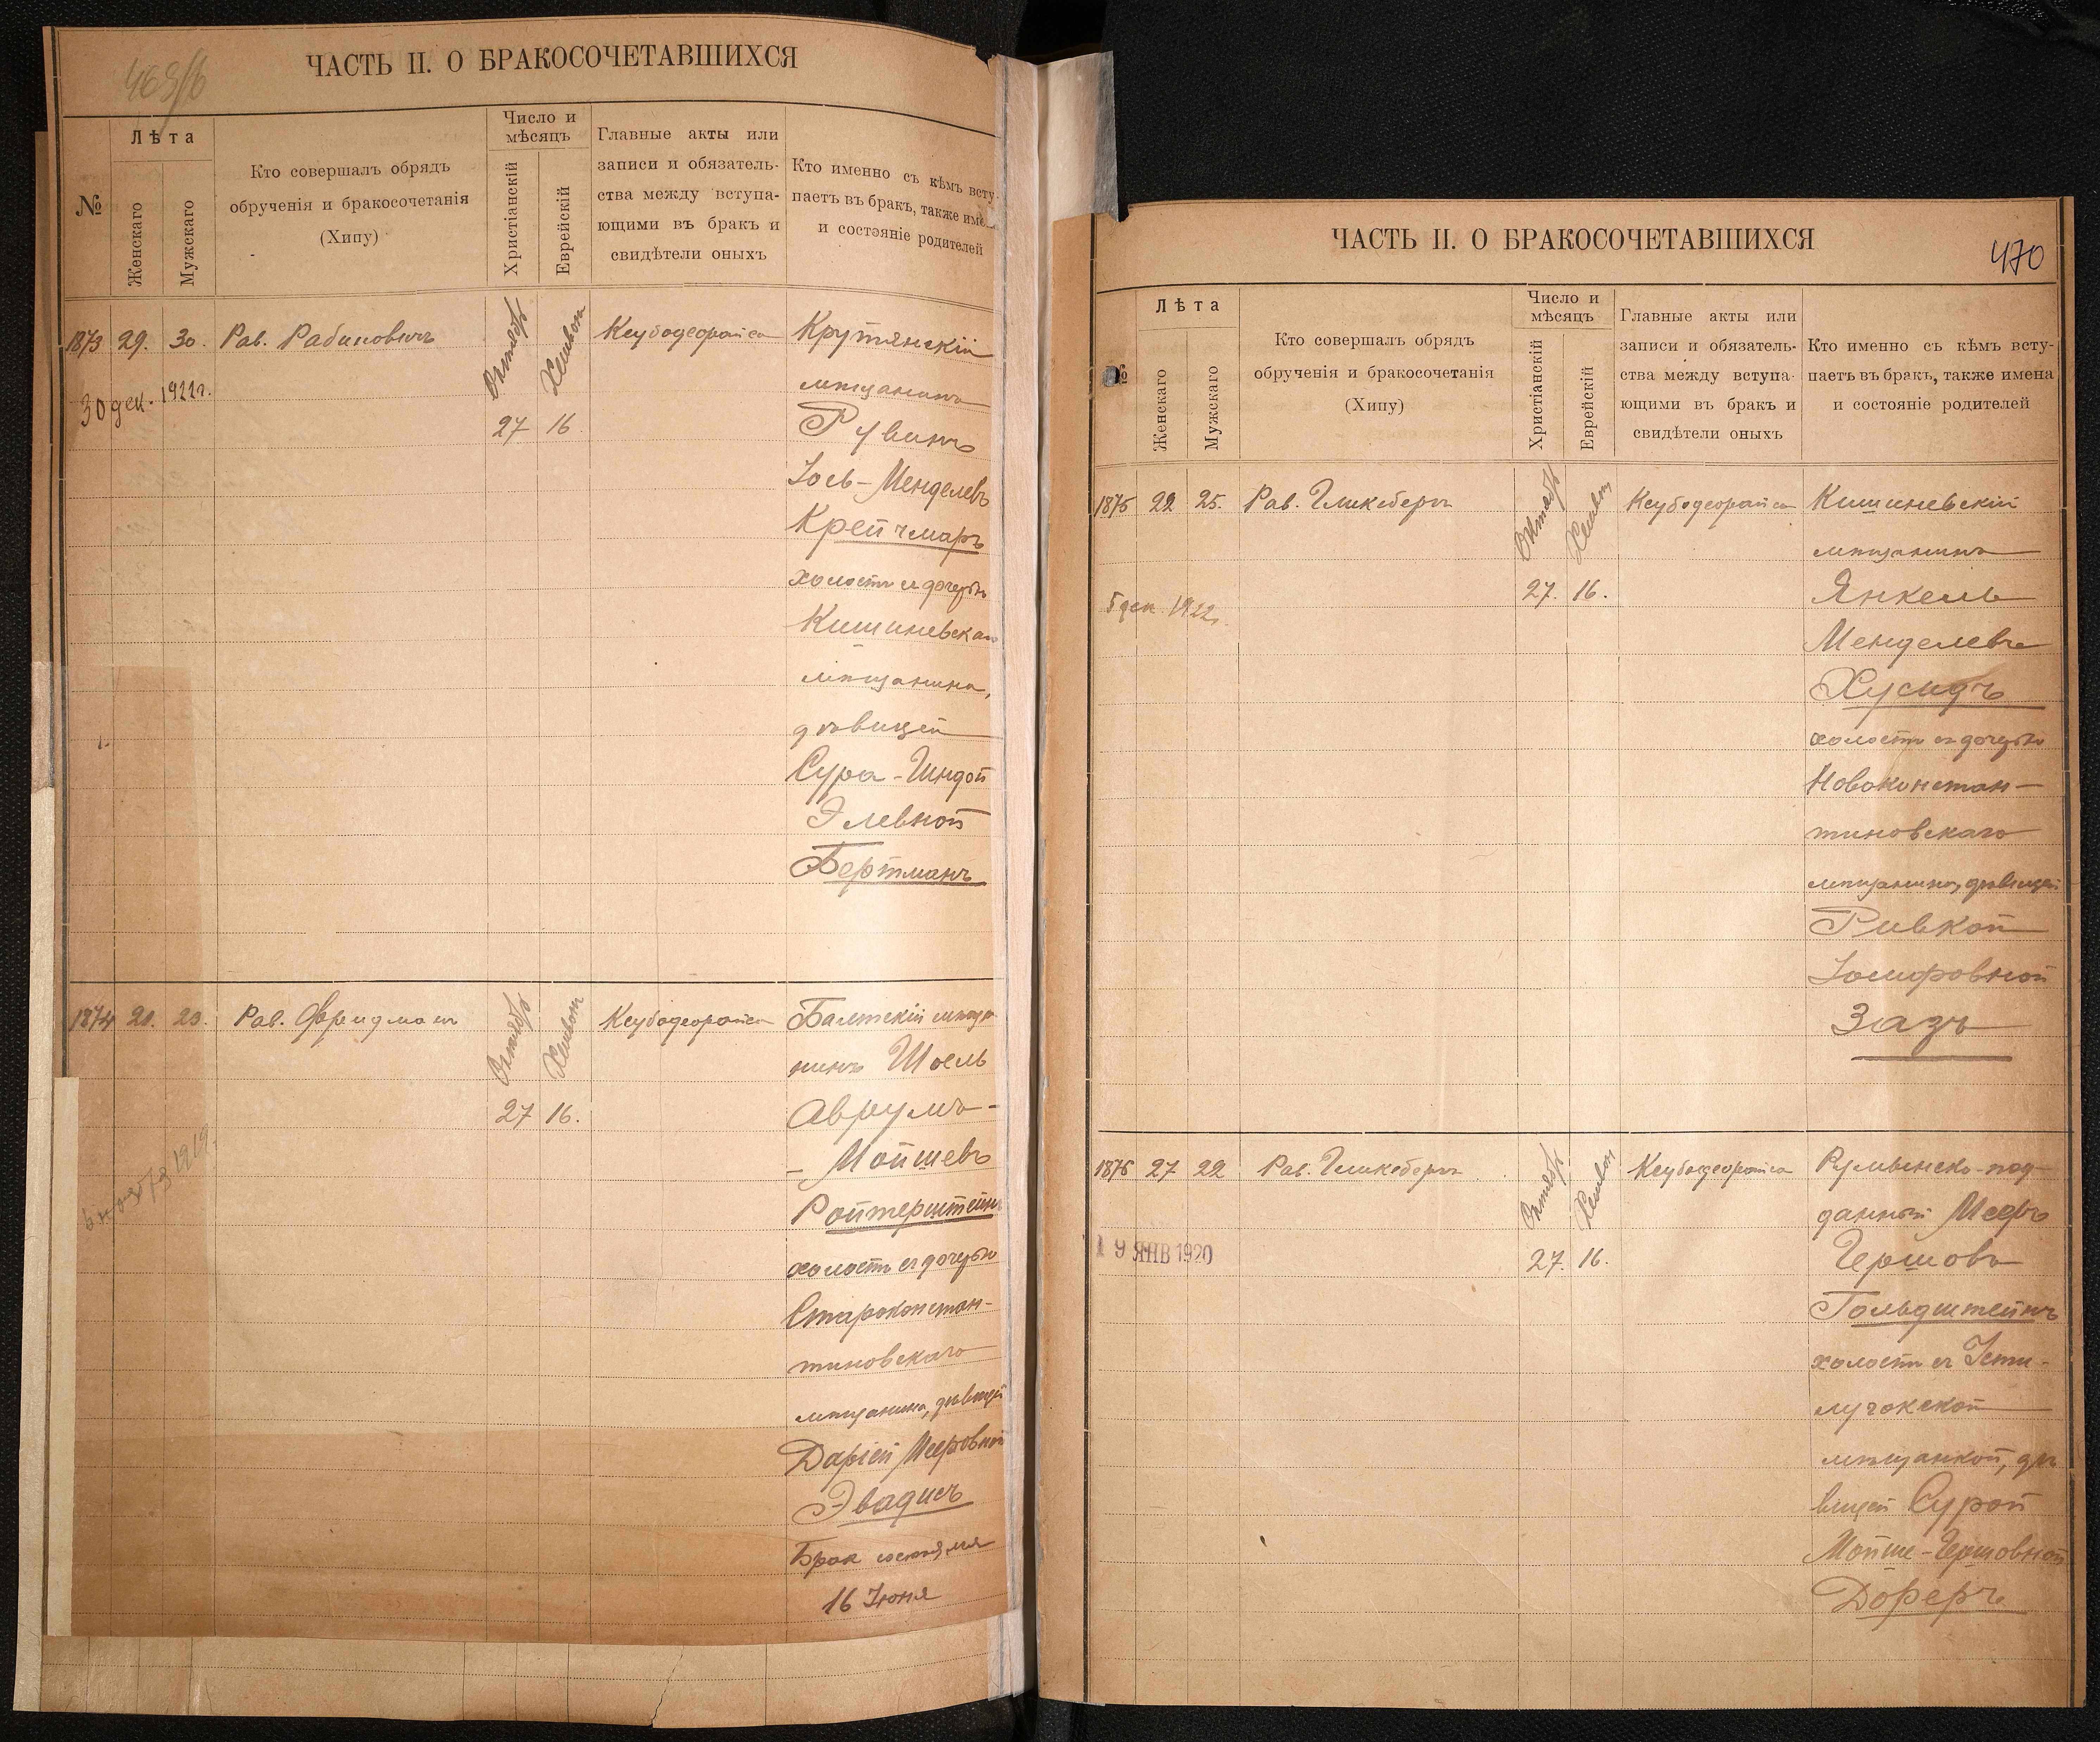 469/б
ЧАСТЬ II. О БРАКОСОЧЕТАВШИХСЯ
№
Лѣта
Женскаго
Мужскаго
Кто совершалъ обрядъ
обрученія и бракосочетанія
(Хипу)
Число и
мѣсяцъ
Христіанскій
Еврейскій
Главные акты или
записи и обязатель-
ства между вступа-
ющими въ бракъ и
свидѣтели оныхъ
Кто именно съ кѣмъ всту-
паетъ въ бракъ, также име
и состояніе родителей
1873 29. 30. Рав. Рабиновичъ Октябрь Хешвон Кеубодеорайса Крутянскій
30 дек. 1922г.
мѣщанинъ
27 16 Рувинъ
Іось-Менделевъ
Крейчмаръ
холостъ съ дочерью
Кишиневскаго
мѣщанина,
дѣвицей
Сура-Гиндой
Элевной
Бертманъ
1874 20. 23. Рав. Фридманъ Октябрь Хешвон Кеубодеорайса Балтскій мѣща
нинъ Шоель
27 16. Аврумъ-
- Мойшевъ
6 ноября 1919.
Ройтерштейнъ
холостъ съ дочерью
Староконстан-
тиновскаго
мѣщанина, дѣвицей
Даріей Мееровной
Эвадисъ
Брак состоялся
16 Іюня
470
ЧАСТЬ II. О БРАКОСОЧЕТАВШИХСЯ
№
Лѣта
Женскаго
Мужскаго
Кто совершалъ обрядъ
обрученія и бракосочетанія
(Хипу)
Число и
мѣсяцъ
Христіанскій
Еврейскій
Главные акты или
записи и обязатель-
ства между вступа-
ющими въ бракъ и
свидѣтели оныхъ
Кто именно съ кѣмъ всту-
паетъ въ бракъ, также имена
и состояніе родителей
1875 22 25. Рав. Гликсберг Октябрь Хешвон Кеубодеорайса Кишиневскій
мѣщанинъ
5 дек. 1922г.
27. 16. Янкель
Менделевъ
Хусидъ
холостъ съ дочерью
Новоконстан-
тиновскаго
мѣщанина, дѣвицей
Ривкой
Іосифовной
Зазъ
1876 27 22 Рав. Гликсберг Октябрь Хешвон Кеубодеорайса Румынско-под-
данный Мееръ
19 ЯНВ 1920
27. 16. Гершовъ
Гольдштейнъ
холостъ съ Усти-
лугокской
мѣщанкой, дѣ
вицей Сурой
Мойше-Гершовной
Доферъ